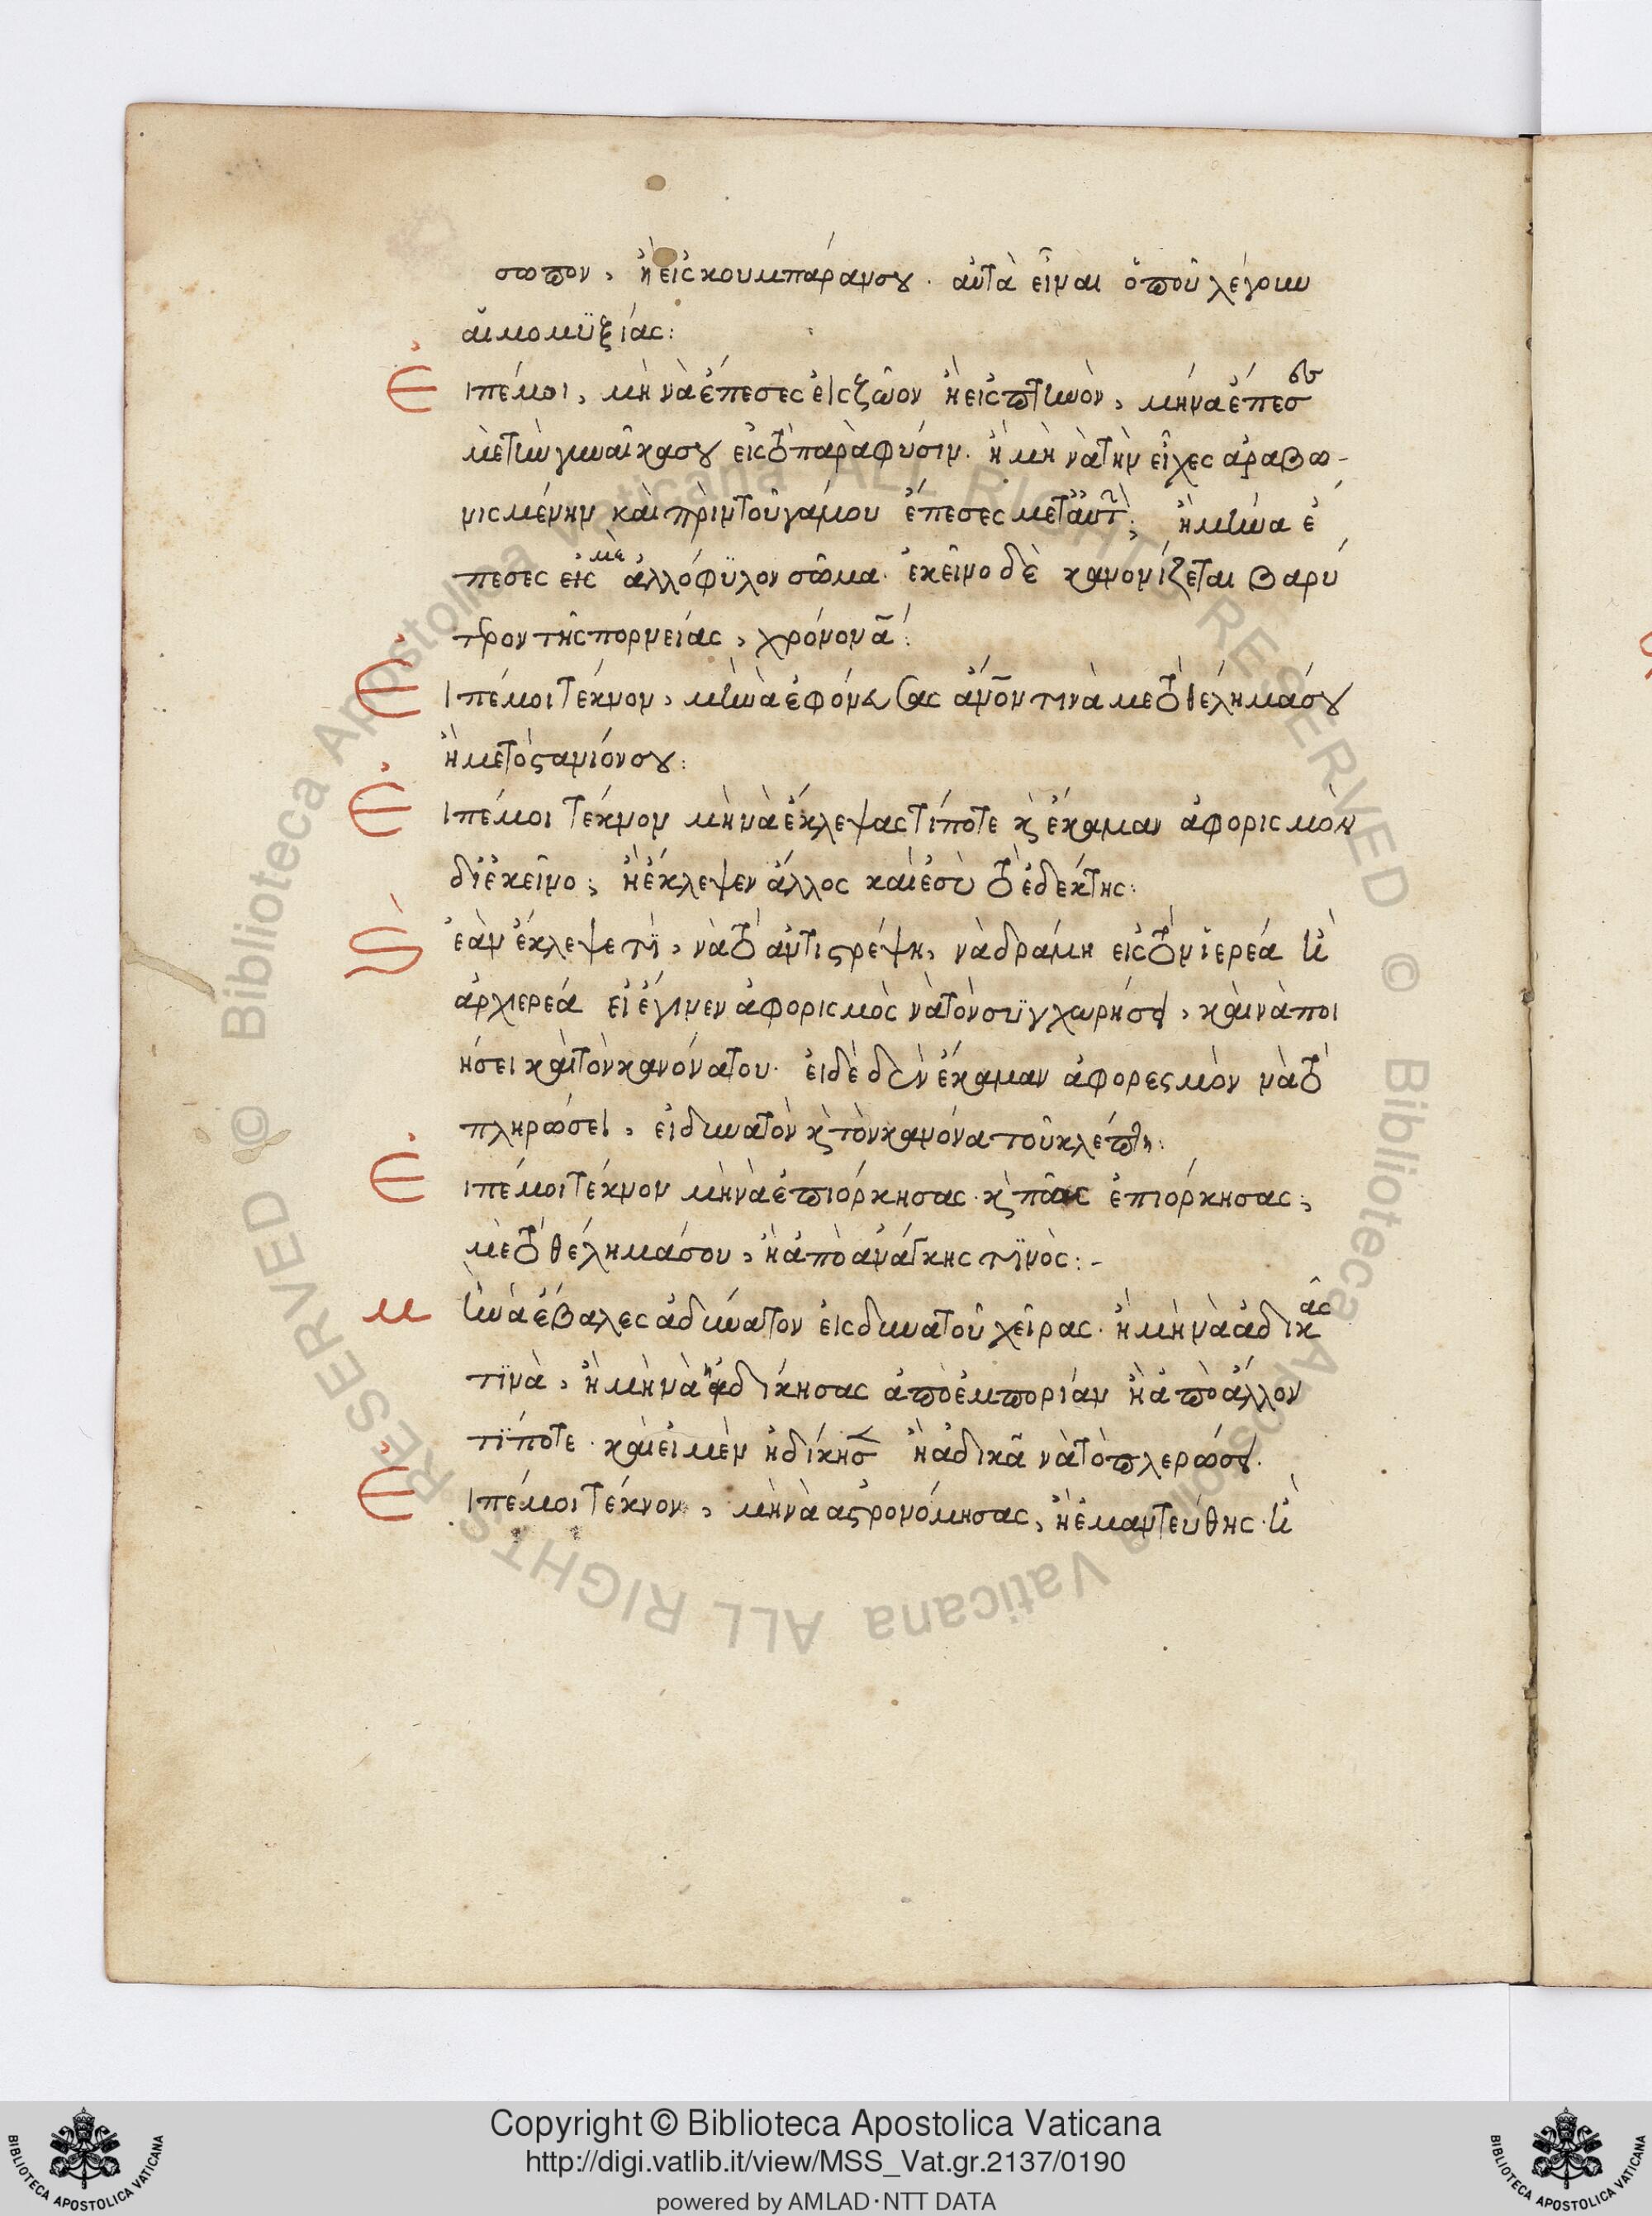 σωπον, ἢ εἰς κουμπάρανσου. αὐτὰ εἶναι ὁποῦ λέγουν
αἱμομϋξίας:
Εἰπέμοι, μὴ νὰ ἔπεσες εἰς ζῶον ἢ εἰς πτηνὸν, μήνα ἔπεσες
μὲ τὴν γυναῖκασου εἰς τὸ παρὰ φύσιν. ἢ μὴ νὰ τὴν εἶχες ἀραβω-
νισμένην καὶ πρὶν τοῦ γάμου ἔπεσες μετ' αὐτὴν; ἢ μὴνα ἔ
πεσες εἰς με ἀλλόφϋλον σῶμα. ἐκεῖνο δὲ κανονίζεται βαρύ
τερον τῆς πορνείας, χρόνον ᾶ:
Εἰπέμοι τέκνον, μὴνὰ ἐφόνευσας ἄνθρωπον τινὰ με τὸ θέλημάσου
ἢ με τὸ στανιόνσου:
Εἰπέμοι τέκνον μὴνὰ ἔκλεψας τίποτε κὶ ἔκαμαν ἀφορισμὸν
δι' ἐκεῖνο; ἢ ἔκλεψεν ἄλλος καὶ ἐσὺ τὸ ἐδέκτης:
ἐὰν ἔκλεψε τῒ, νὰ τὸ ἀντιστρέψη, νὰ δράμη εἰς τὸν ἱερέα ἢ
ἀρχιερέα εἰ ἔγινεν ἀφορισμὸς νὰ τὸν συϋγχωρήσῃ, καὶ νὰ ποι
ήσει καὶ τὸν κανόνατου. εἰδὲ δὲν ἔκαμαν ἀφορεσμὸν νὰ τὸ
πληρώσει, εἰ δυνατὸν κὶ τὸν κανόνα τοῦ κλέπτη:
Εἰπέμοι τέκνον μὴνὰ ἐπιόρκησας. κὶ πῶς ἐπιόρκησας;
μὲ τὸ θέλημάσου, ἢ ἀπὸ ἀνάγκης τϊνὸς:-
μὴνὰ ἔβαλες ἀδύνατον εἰς δυνατοῦ χεῖρας. ἢ μὴνὰ ἀδικᾶς
τϊνὰ, ἢ μὴνὰ ἠδίκησας ἀπὸ ἐμπορίαν ἢ ἀπὸ ἄλλον
τϊποτε. καὶ εἰ μὲν ἠδίκησεν ἢ ἀδικᾶ νὰ τὸ πλερώσῃ.
Εἰπέμοι τέκνον, μὴνὰ αστρονόμησας, ἢ ἐμαντεύθης. ἢ
Copyright © Biblioteca Apostolica Vaticana
http://digi.vatlib.it/view/MSS_Vat.gr.2137/0190
powered by AMLAD·NTT DATA